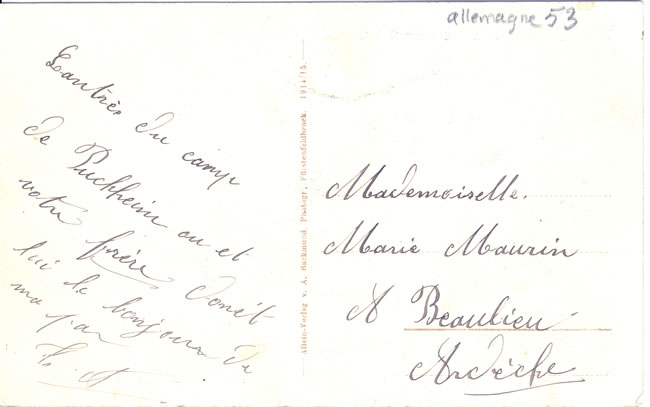 allemagne 53
Lantrès du camp
de Puchheim ou et
votre frère donét
lui le bonjour de
ma par
Allein-Verlag v. A. Buckmund, Photogr., Fürstenfeldbruck. 1914/15.
Mademoiselle.
Marie Maurin
A Beaulieu
Ardèche